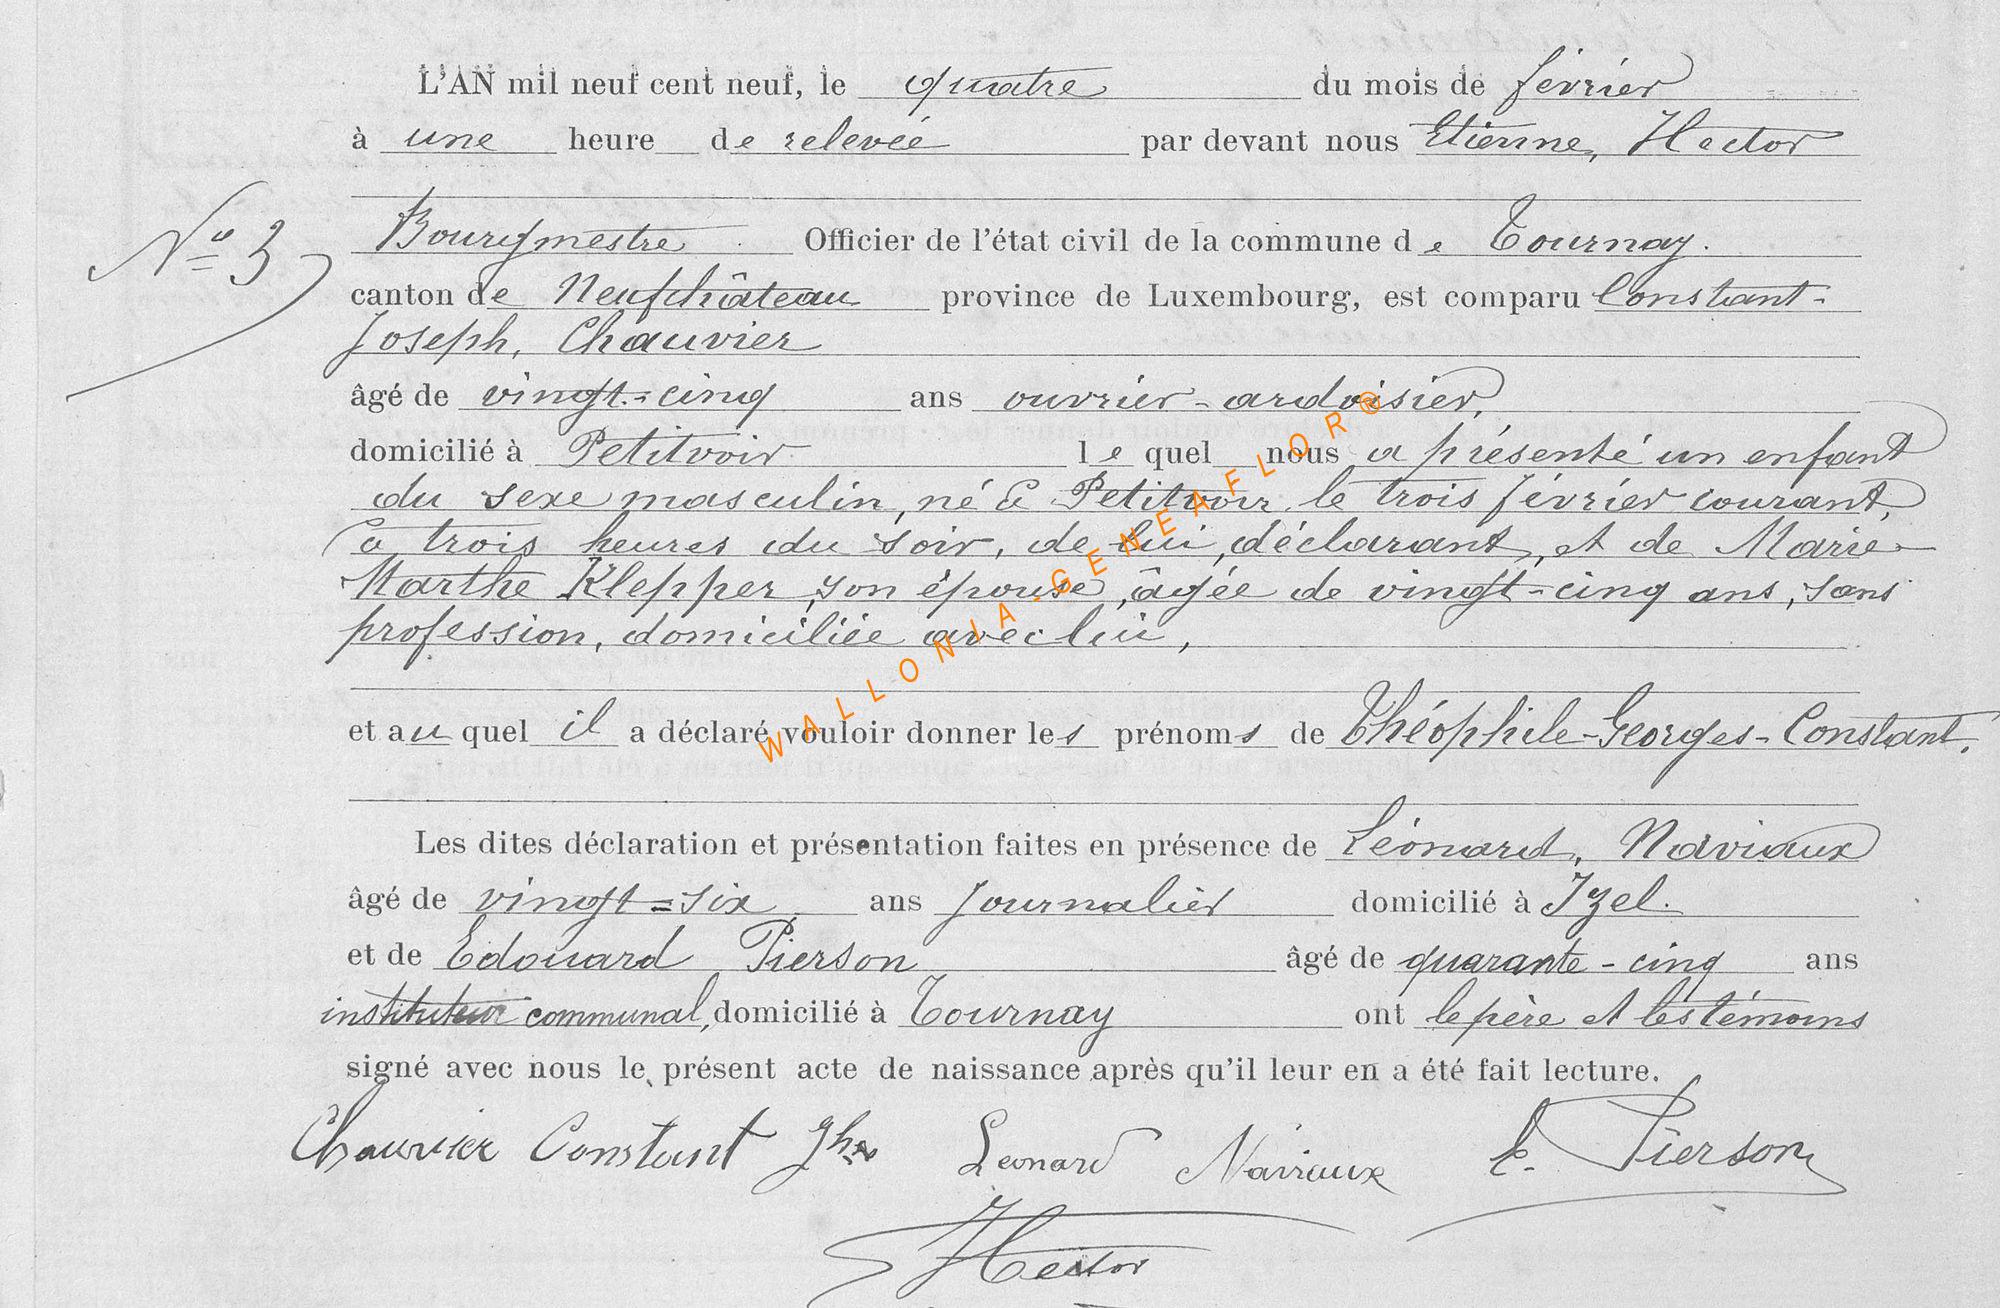 L'AN mil neuf cent neuf, le quatre du mois de février
à une heure de relevée par devant nous Etienne, Hector
N° 3
Bourgmestre Officier de l'état civil de la commune de Tournay.
canton de Neufchâteau province de Luxembourg, est comparu Constant-
Joseph, Chauvier
âgé de vingt-cinq ans ouvrier-ardoisier,
domicilié à Petitvoir lequel nous a présenté un enfant
du sexe masculin, né à Petitvoir, le trois février courant,
à trois heures du soir, de lui, déclarant, et de Marie-
Marthe Klepper, son épouse, âgée de vingt-cinq ans, sans
profession, domiciliée avec lui,
et au quel il a déclaré vouloir donner les prénoms de Théophile-Georges-Constant.
Les dites déclaration et présentation faites en présence de Léonard, Naviaux
âgé de vingt-six ans journalier domicilié à Izel.
et de Edouard Pierson âgé de quarante-cinq ans
instituteur communal, domicilié à Tournay ont le père et les témoins
signé avec nous le présent acte de naissance après qu'il leur en a été fait lecture.
Chauvier Constant Jh Leonard Naviaux E. Pierson
Hector
WALLONIA-GENEAFLOR®